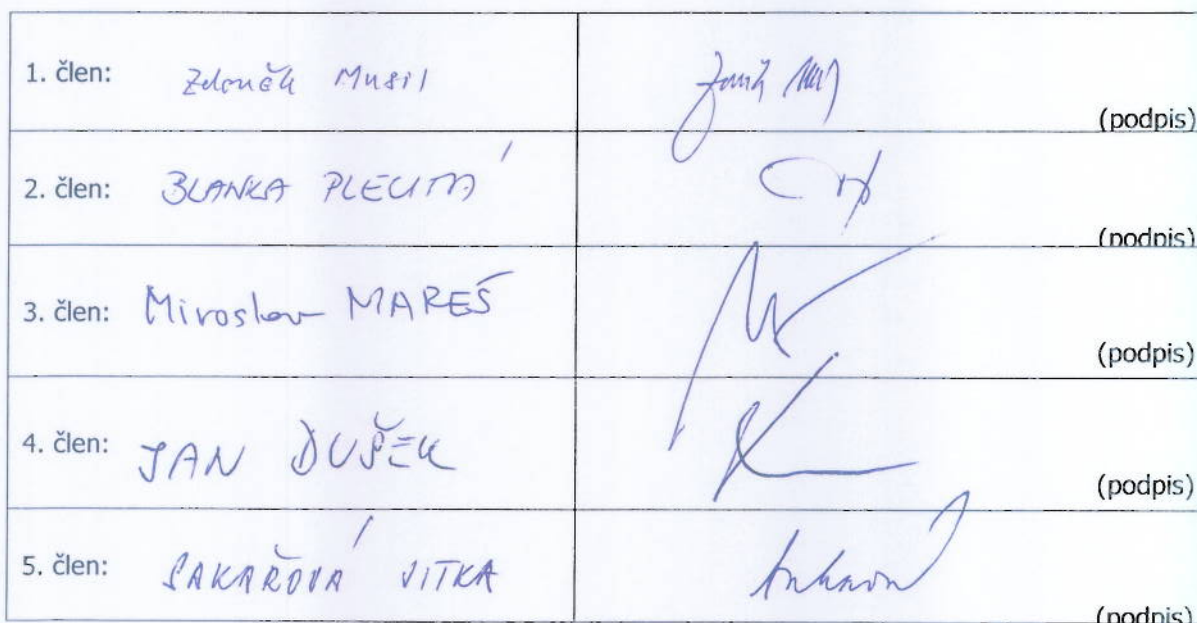 1. člen: Zdeněk Musil
(podpis)
2. člen: BLANKA PLECITÁ
(podpis)
3. člen: Miroslav MAREŠ
(podpis)
4. člen: JAN DUŠEK
(podpis)
5. člen: SAKAŘOVÁ JITKA
(podpis)